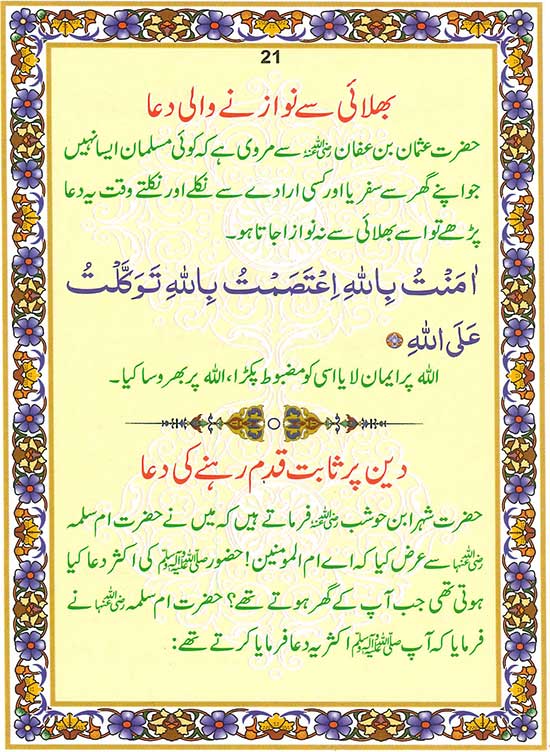 21
بھلائی سے نوازنے والی دعا
حضرت عثمان بن عفان رضی اللہ عنہ سے مروی ہے کہ کوئی مسلمان ایسا نہیں
جو اپنے گھر سے سفر یا اور کسی ارادے سے نکلے اور نکلتے وقت یہ دعا
پڑھے تو اسے بھلائی سے نہ نوازا جاتا ہو۔
اٰمَنْتُ بِاللّٰهِ اِعْتَصَمْتُ بِاللّٰهِ تَوَكَّلْتُ
عَلَى اللّٰهِ
اللہ پر ایمان لایا اسی کو مضبوط پکڑا، اللہ پر بھروسا کیا۔
دین پر ثابت قدم رہنے کی دعا
حضرت شہر ابن حوشب رضی اللہ عنہ فرماتے ہیں کہ میں نے حضرت ام سلمہ
رضی اللہ عنہا سے عرض کیا کہ اے ام المومنین! حضور ﷺ کی اکثر دعا کیا
ہوتی تھی جب آپ کے گھر ہوتے تھے؟ حضرت ام سلمہ رضی اللہ عنہا نے
فرمایا کہ آپ ﷺ اکثر یہ دعا فرمایا کرتے تھے: